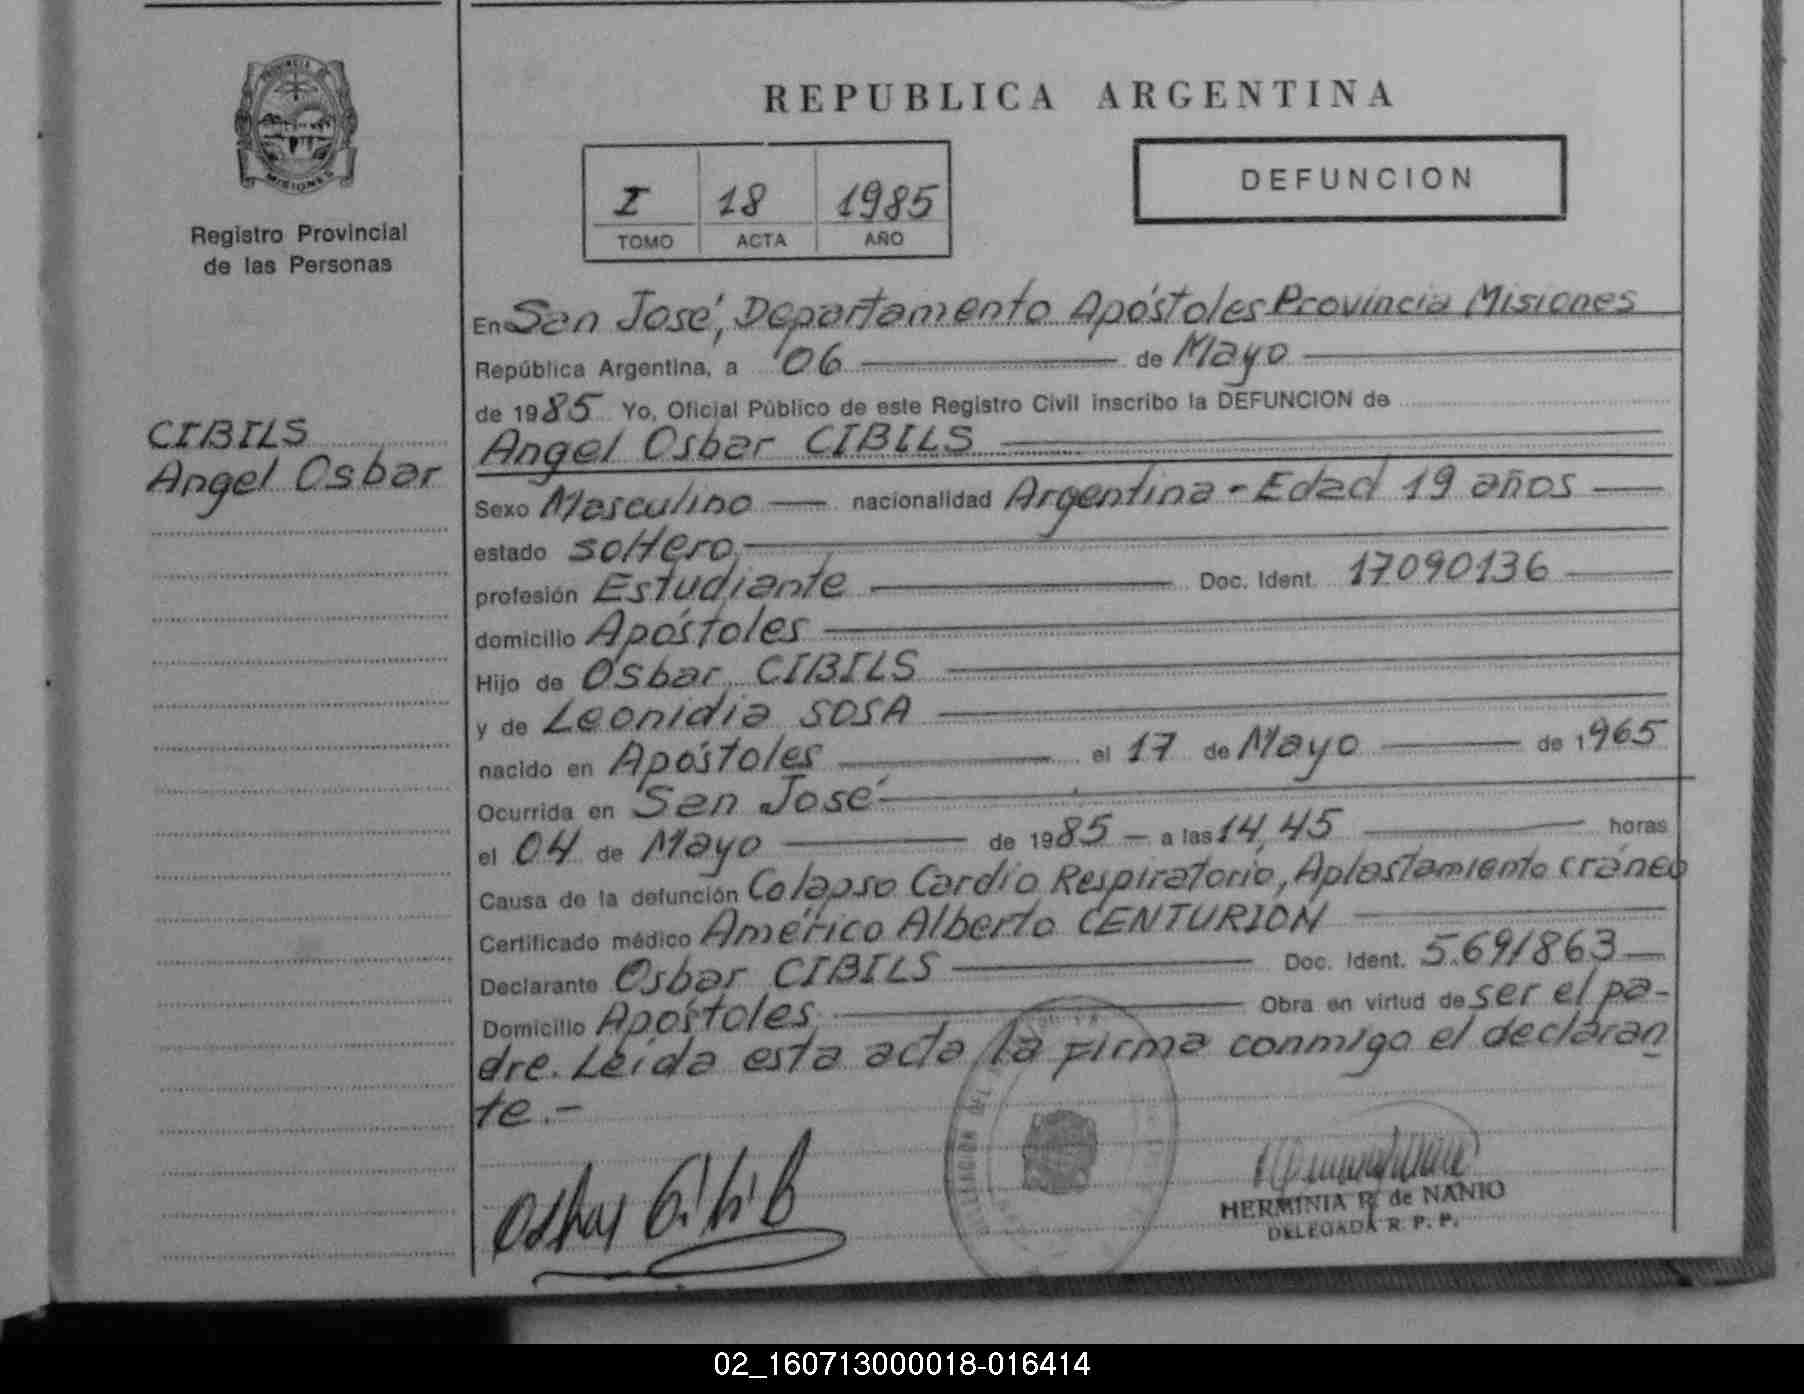 PROVINCIA DE
MISIONES
Registro Provincial
de las Personas
CIBILS
Angel Osbar
REPUBLICA ARGENTINA
I 18 1985
TOMO ACTA AÑO
DEFUNCION
En San José, Departamento Apóstoles Provincia Misiones
República Argentina, a 06 de Mayo
de 1985 Yo, Oficial Público de este Registro Civil inscribo la DEFUNCION de
Angel Osbar CIBILS
Sexo Masculino nacionalidad Argentina - Edad 19 años
estado soltero
profesión Estudiante Doc. Ident. 17090136
domicilio Apóstoles
Hijo de Osbar CIBILS
y de Leonidia SOSA
nacido en Apóstoles el 17 de Mayo de 1965
Ocurrida en San José
el 04 de Mayo de 1985 - a las 14,45 horas
Causa de la defunción Colapso Cardio Respiratorio, Aplastamiento cráneo
Certificado médico Américo Alberto CENTURION
Declarante Osbar CIBILS Doc. Ident. 5.691863
Domicilio Apóstoles Obra en virtud de ser el pa-
dre. Leída esta acta la firma conmigo el declaran
te.-
Osbar Cibils
DELEGACION DEL
HERMINIA R. de NANIO
DELEGADA R. P. P.
02_160713000018-016414